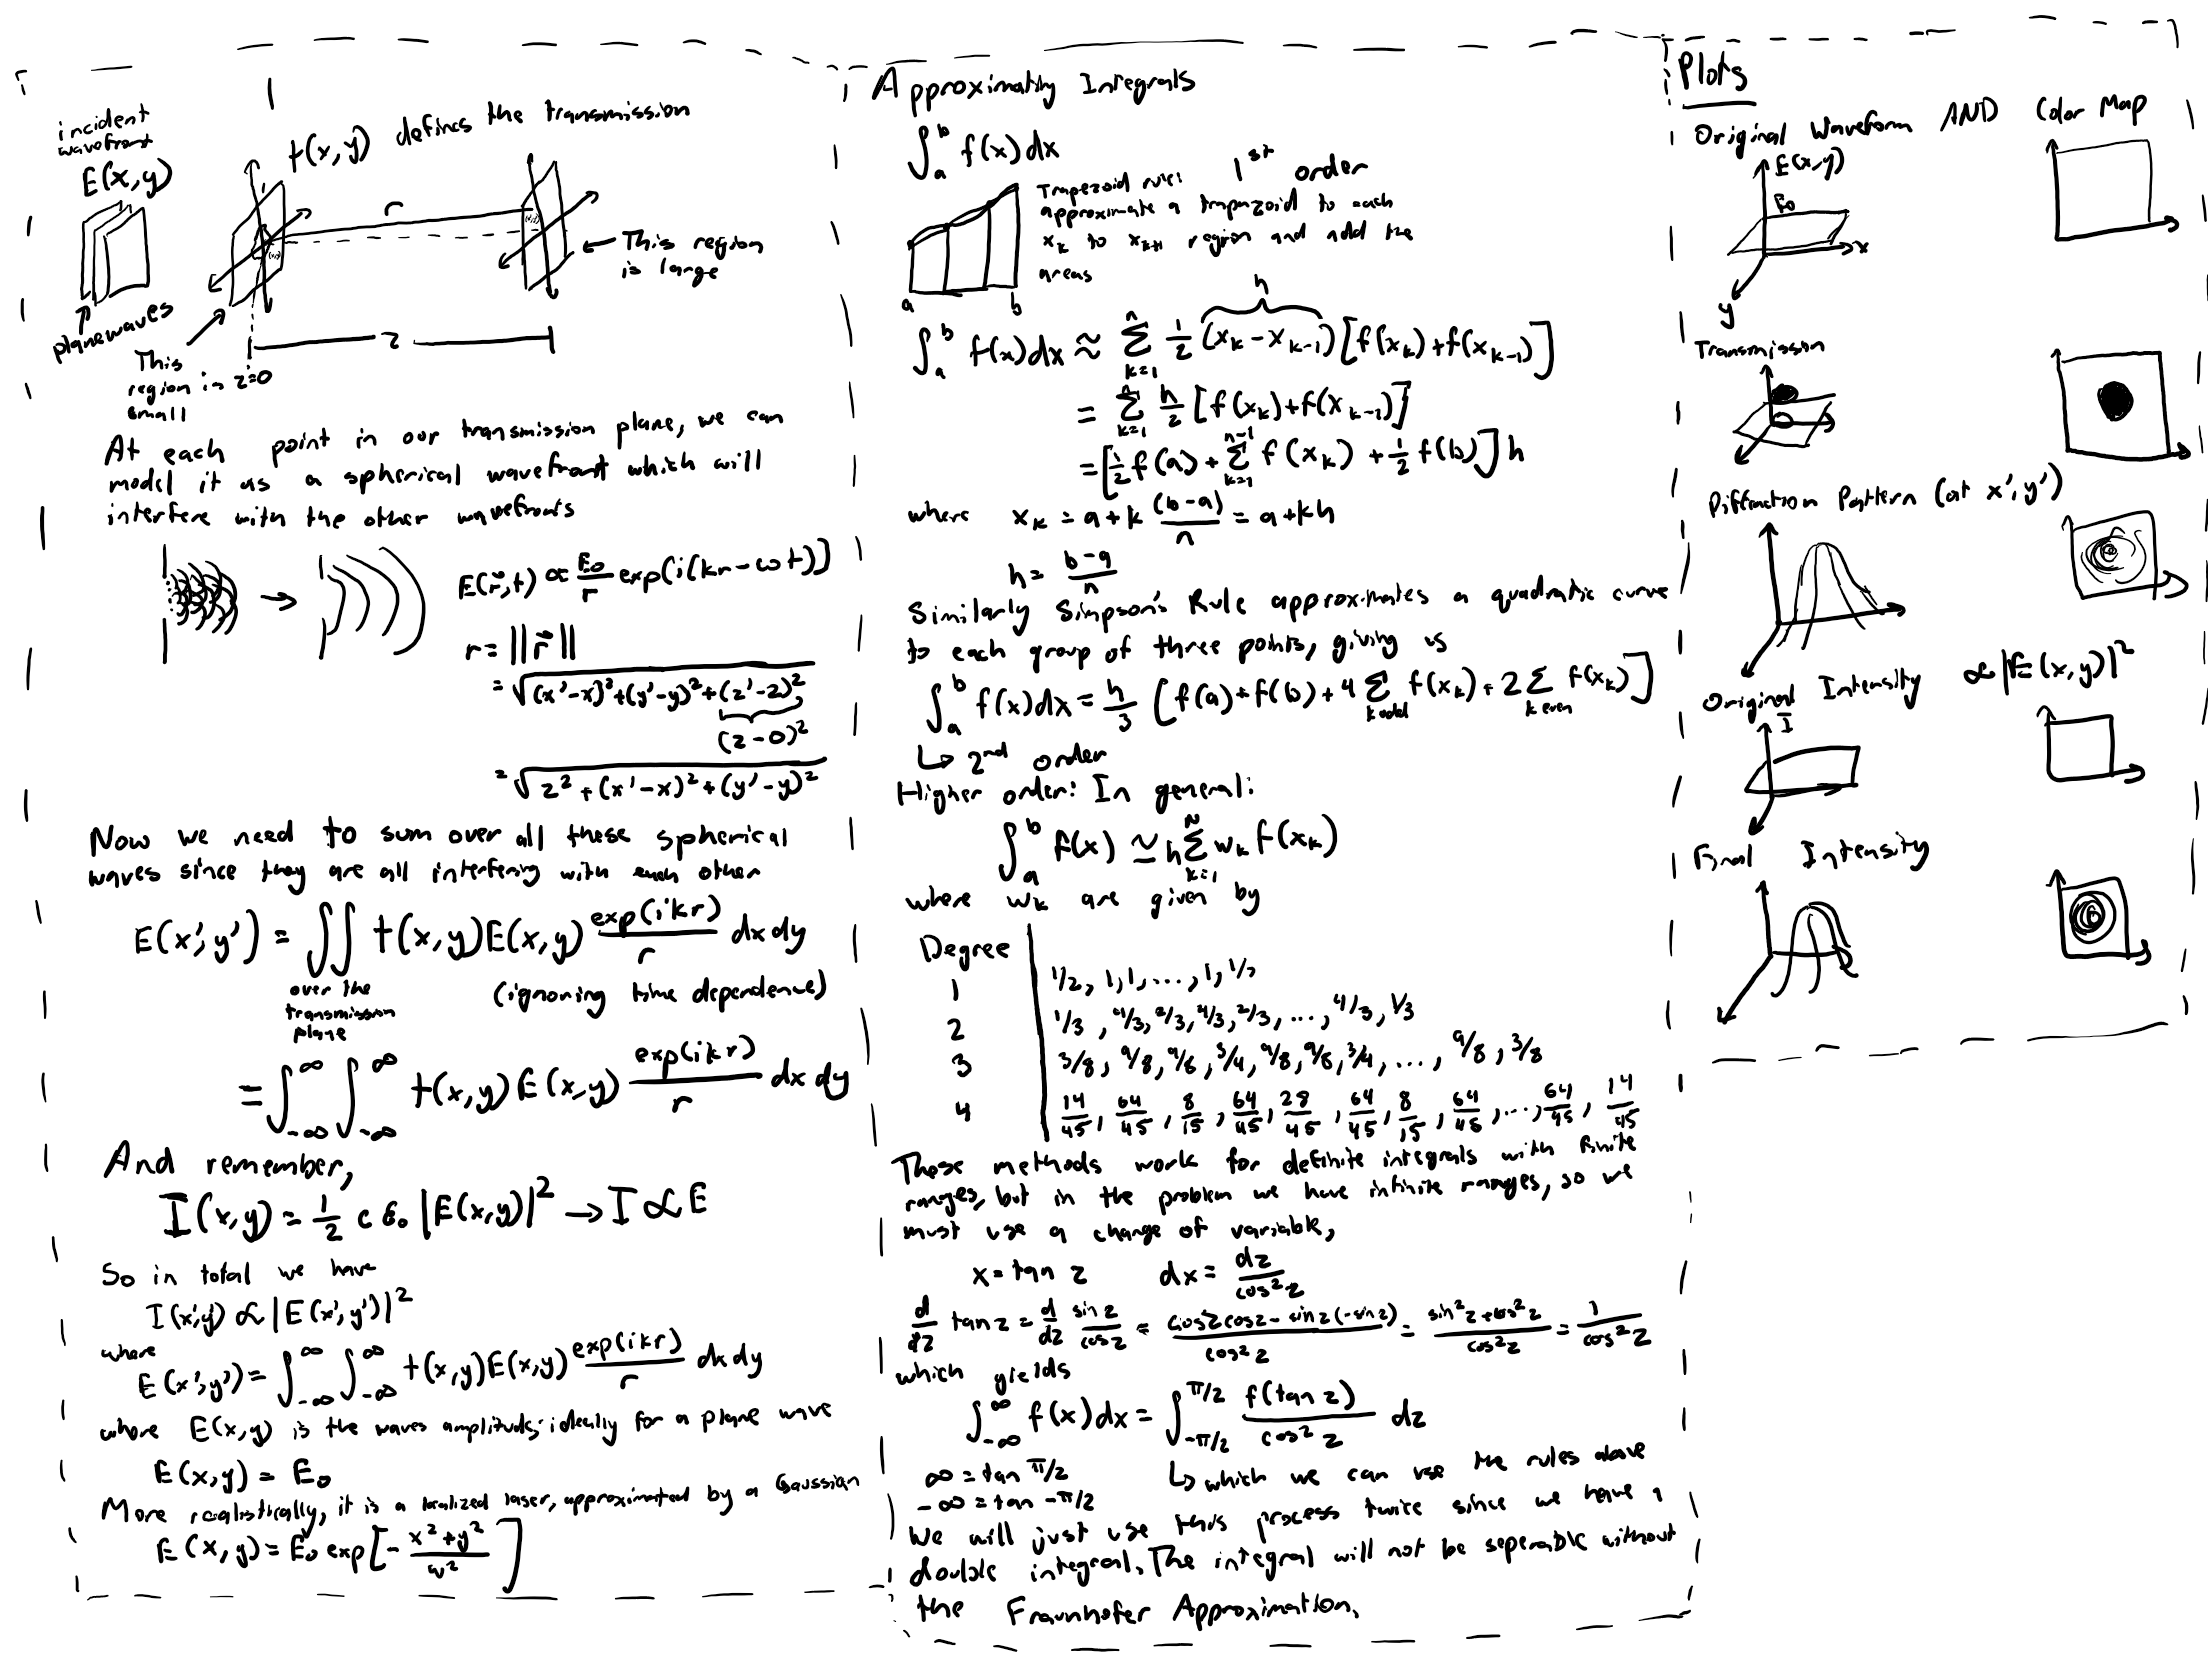 incident
wavefront
E(x,y)
t(x,y) defines the transmission
r
← This region
is large
planewaves
z
This
region is z=0
small
At each point in our transmission plane, we can
model it as a spherical wavefront which will
interfere with the other wavefronts
E(r⃗,t) ∝ E₀/r exp(i(kr-ωt))
r = ||r⃗||
= √((x'-x)²+(y'-y)²+(z'-z)²)
(z-0)²
= √(z²+(x'-x)²+(y'-y)²)
Now we need to sum over all these spherical
waves since they are all interfering with each other
E(x',y') = ∬ t(x,y)E(x,y) exp(ikr)/r dxdy
over the
transmission
plane
(ignoring time dependence)
= ∫_{-∞}^{∞} ∫_{-∞}^{∞} t(x,y)E(x,y) exp(ikr)/r dxdy
And remember,
I(x,y) = 1/2 cε₀|E(x,y)|² → I ∝ E
So in total we have
I(x',y') ∝ |E(x',y')|²
where
E(x',y') = ∫_{-∞}^{∞} ∫_{-∞}^{∞} t(x,y)E(x,y) exp(ikr)/r dxdy
where E(x,y) is the waves amplitude; ideally for a plane wave
E(x,y) = E₀
More realistically, it is a localized laser, approximated by a Gaussian
E(x,y) = E₀ exp[-(x²+y²)/w²]
Approximating Integrals
∫_a^b f(x)dx
Trapezoid rule: 1st order
approximate a trapezoid to each
x_k to x_{k+1} region and add the
areas
a b
h
∫_a^b f(x)dx ≈ Σ_{k=1}^{n} 1/2 (x_k - x_{k-1})[f(x_k)+f(x_{k-1})]
= Σ_{k=1}^{n} h/2 [f(x_k)+f(x_{k-1})]
= [1/2 f(a) + Σ_{k=1}^{n-1} f(x_k) + 1/2 f(b)]h
where x_k = a+k (b-a)/n = a+kh
h = (b-a)/n
Similarly Simpson's Rule approximates a quadratic curve
to each group of three points, giving us
∫_a^b f(x)dx = h/3 [f(a)+f(b)+4 Σ_{k odd} f(x_k)+2 Σ_{k even} f(x_k)]
↳ 2nd order
Higher order: In general:
∫_a^b f(x) ≃ h Σ_{k=1}^{N} w_k f(x_k)
where w_k are given by
Degree
1 1/2, 1, 1, ..., 1, 1/2
2 1/3, 4/3, 2/3, 4/3, 2/3, ..., 4/3, 1/3
3 3/8, 9/8, 9/8, 3/4, 9/8, 9/8, 3/4, ..., 9/8, 3/8
4 14/45, 64/45, 8/15, 64/45, 28/45, 64/45, 8/15, 64/45, ..., 64/45, 14/45
These methods work for definite integrals with finite
ranges, but in the problem we have infinite ranges, so we
must use a change of variable,
x = tan z dx = dz/cos²z
d/dz tan z = d/dz sin z/cos z = (cosz cosz - sin z(-sin z))/cos²z = (sin²z+cos²z)/cos²z = 1/cos²z
which yields
∫_{-∞}^{∞} f(x)dx = ∫_{-π/2}^{π/2} f(tan z)/cos²z dz
∞ = tan π/2
-∞ = tan -π/2
↳ which we can use the rules above
We will just use this process twice since we have a
double integral. The integral will not be seperable without
the Fraunhofer Approximation.
Plots
Original Waveform AND Color Map
E(x,y)
E₀
x
y
Transmission
Diffraction Pattern (at x',y')
Original Intensity ∝ |E(x,y)|²
I
Final Intensity